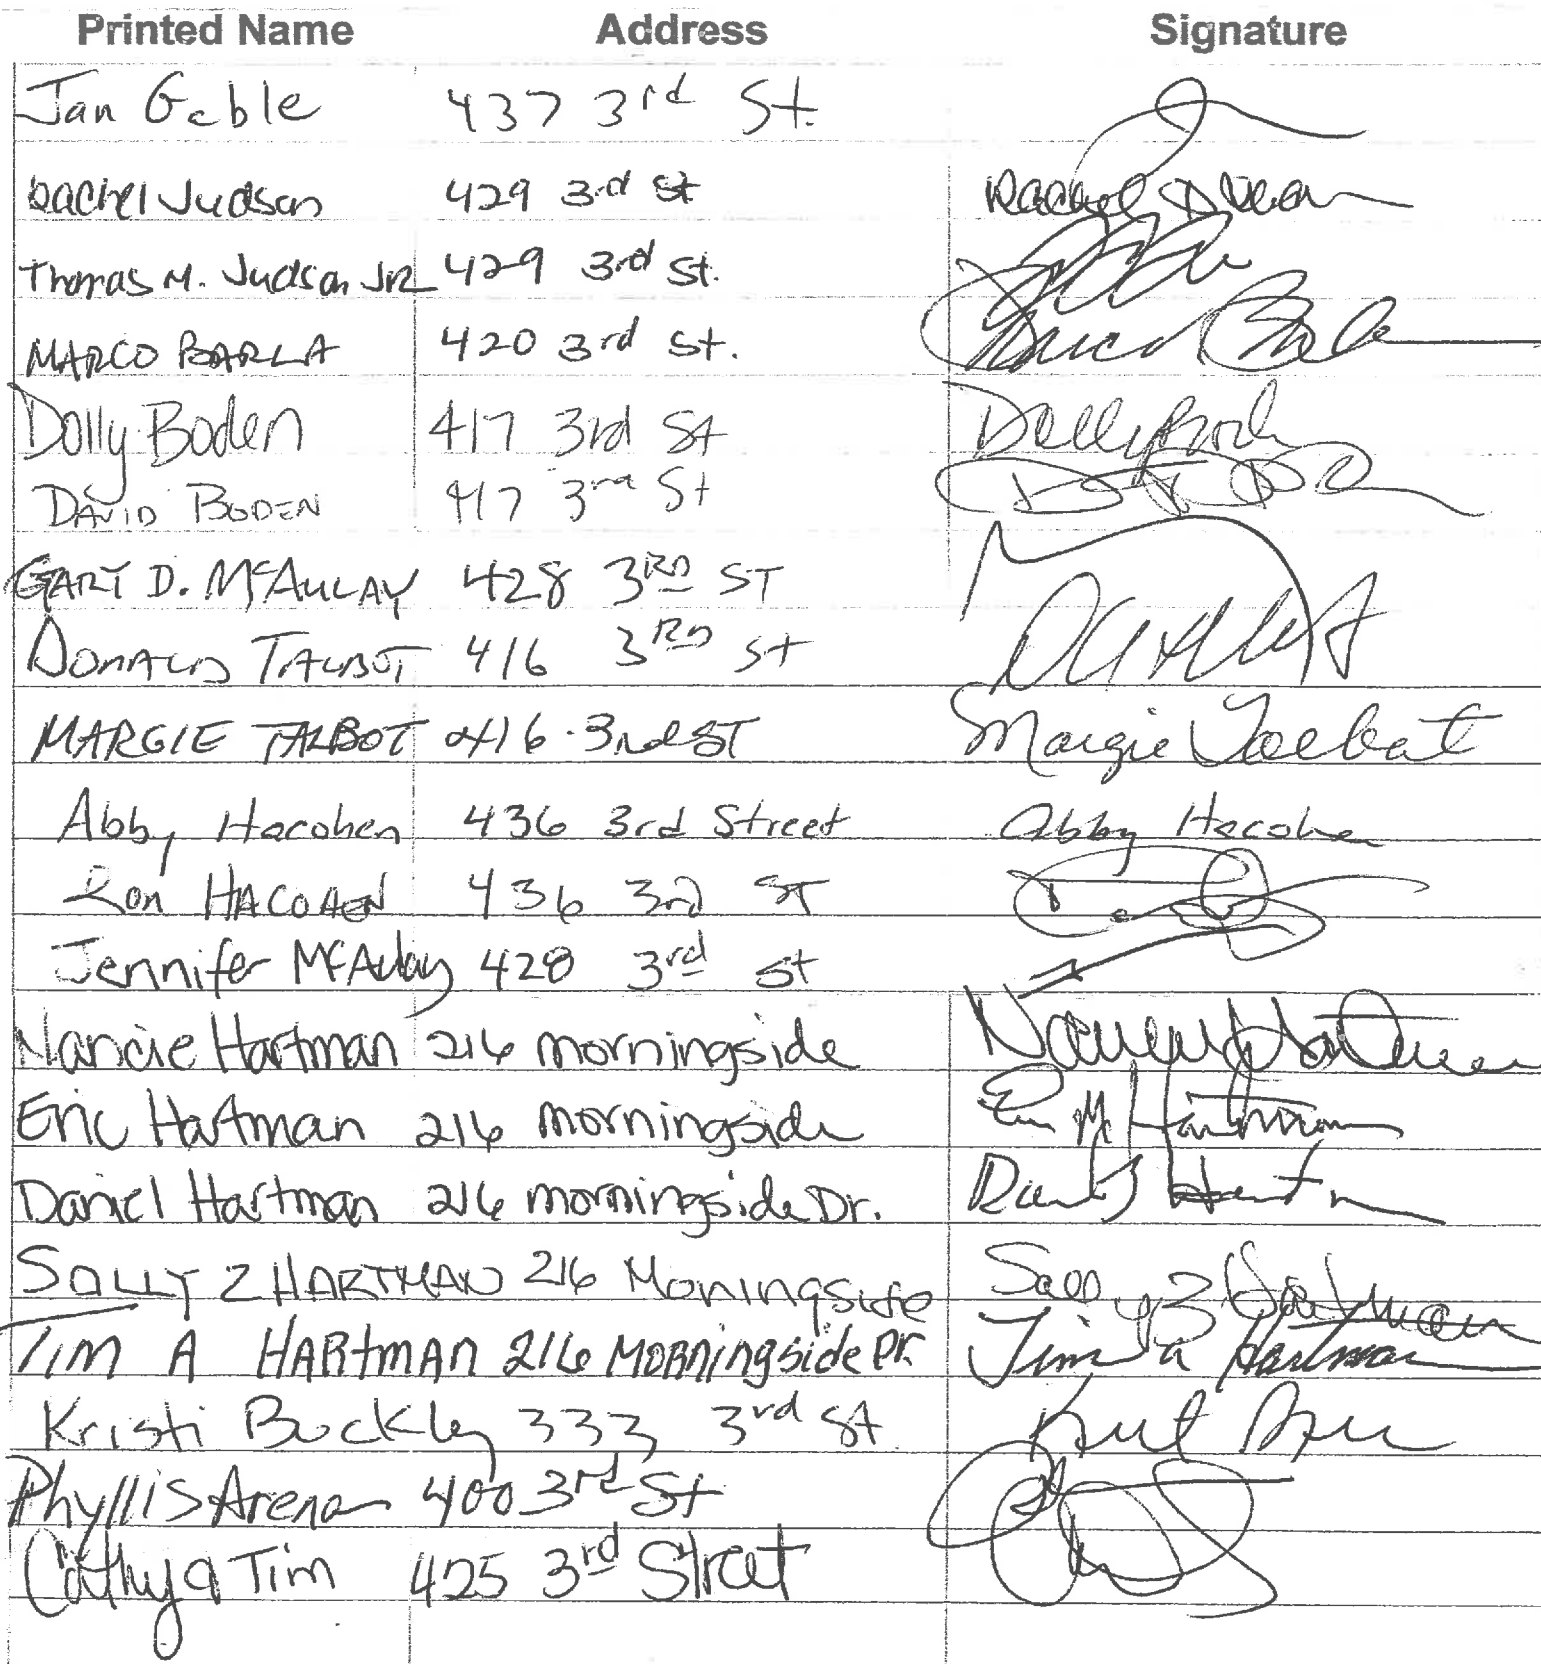 Printed Name Address Signature
Jan Gable 437 3rd St.
Rachel Judson 429 3rd St Rachel
Thomas M. Judson JR 429 3rd St.
MARCO BARLA 420 3rd St. Marco Barla
Dolly Boden 417 3rd St Dolly Boden
DAVID BODEN 417 3rd St
GARY D. McAULAY 428 3RD ST
DONALD TALBOT 416 3RD St
MARGIE TALBOT 416 3rd ST Margie Talbot
Abby Hacohen 436 3rd Street Abby Hacohen
Ron HACOHEN 436 3rd ST
Jennifer McAulay 428 3rd St
Nancie Hartman 216 morningside Hartman
Eric Hartman 216 morningside Eric M Hartman
Daniel Hartman 216 morningside Dr. Daniel Hartman
SALLY Z HARTMAN 216 Moningside Sally Z Hartman
TIM A HARTMAN 216 MORNingside Dr. Tim A Hartman
Kristi Buckley 333 3rd St
Phyllis Arena 400 3rd St
Cathy & Tim 425 3rd Street